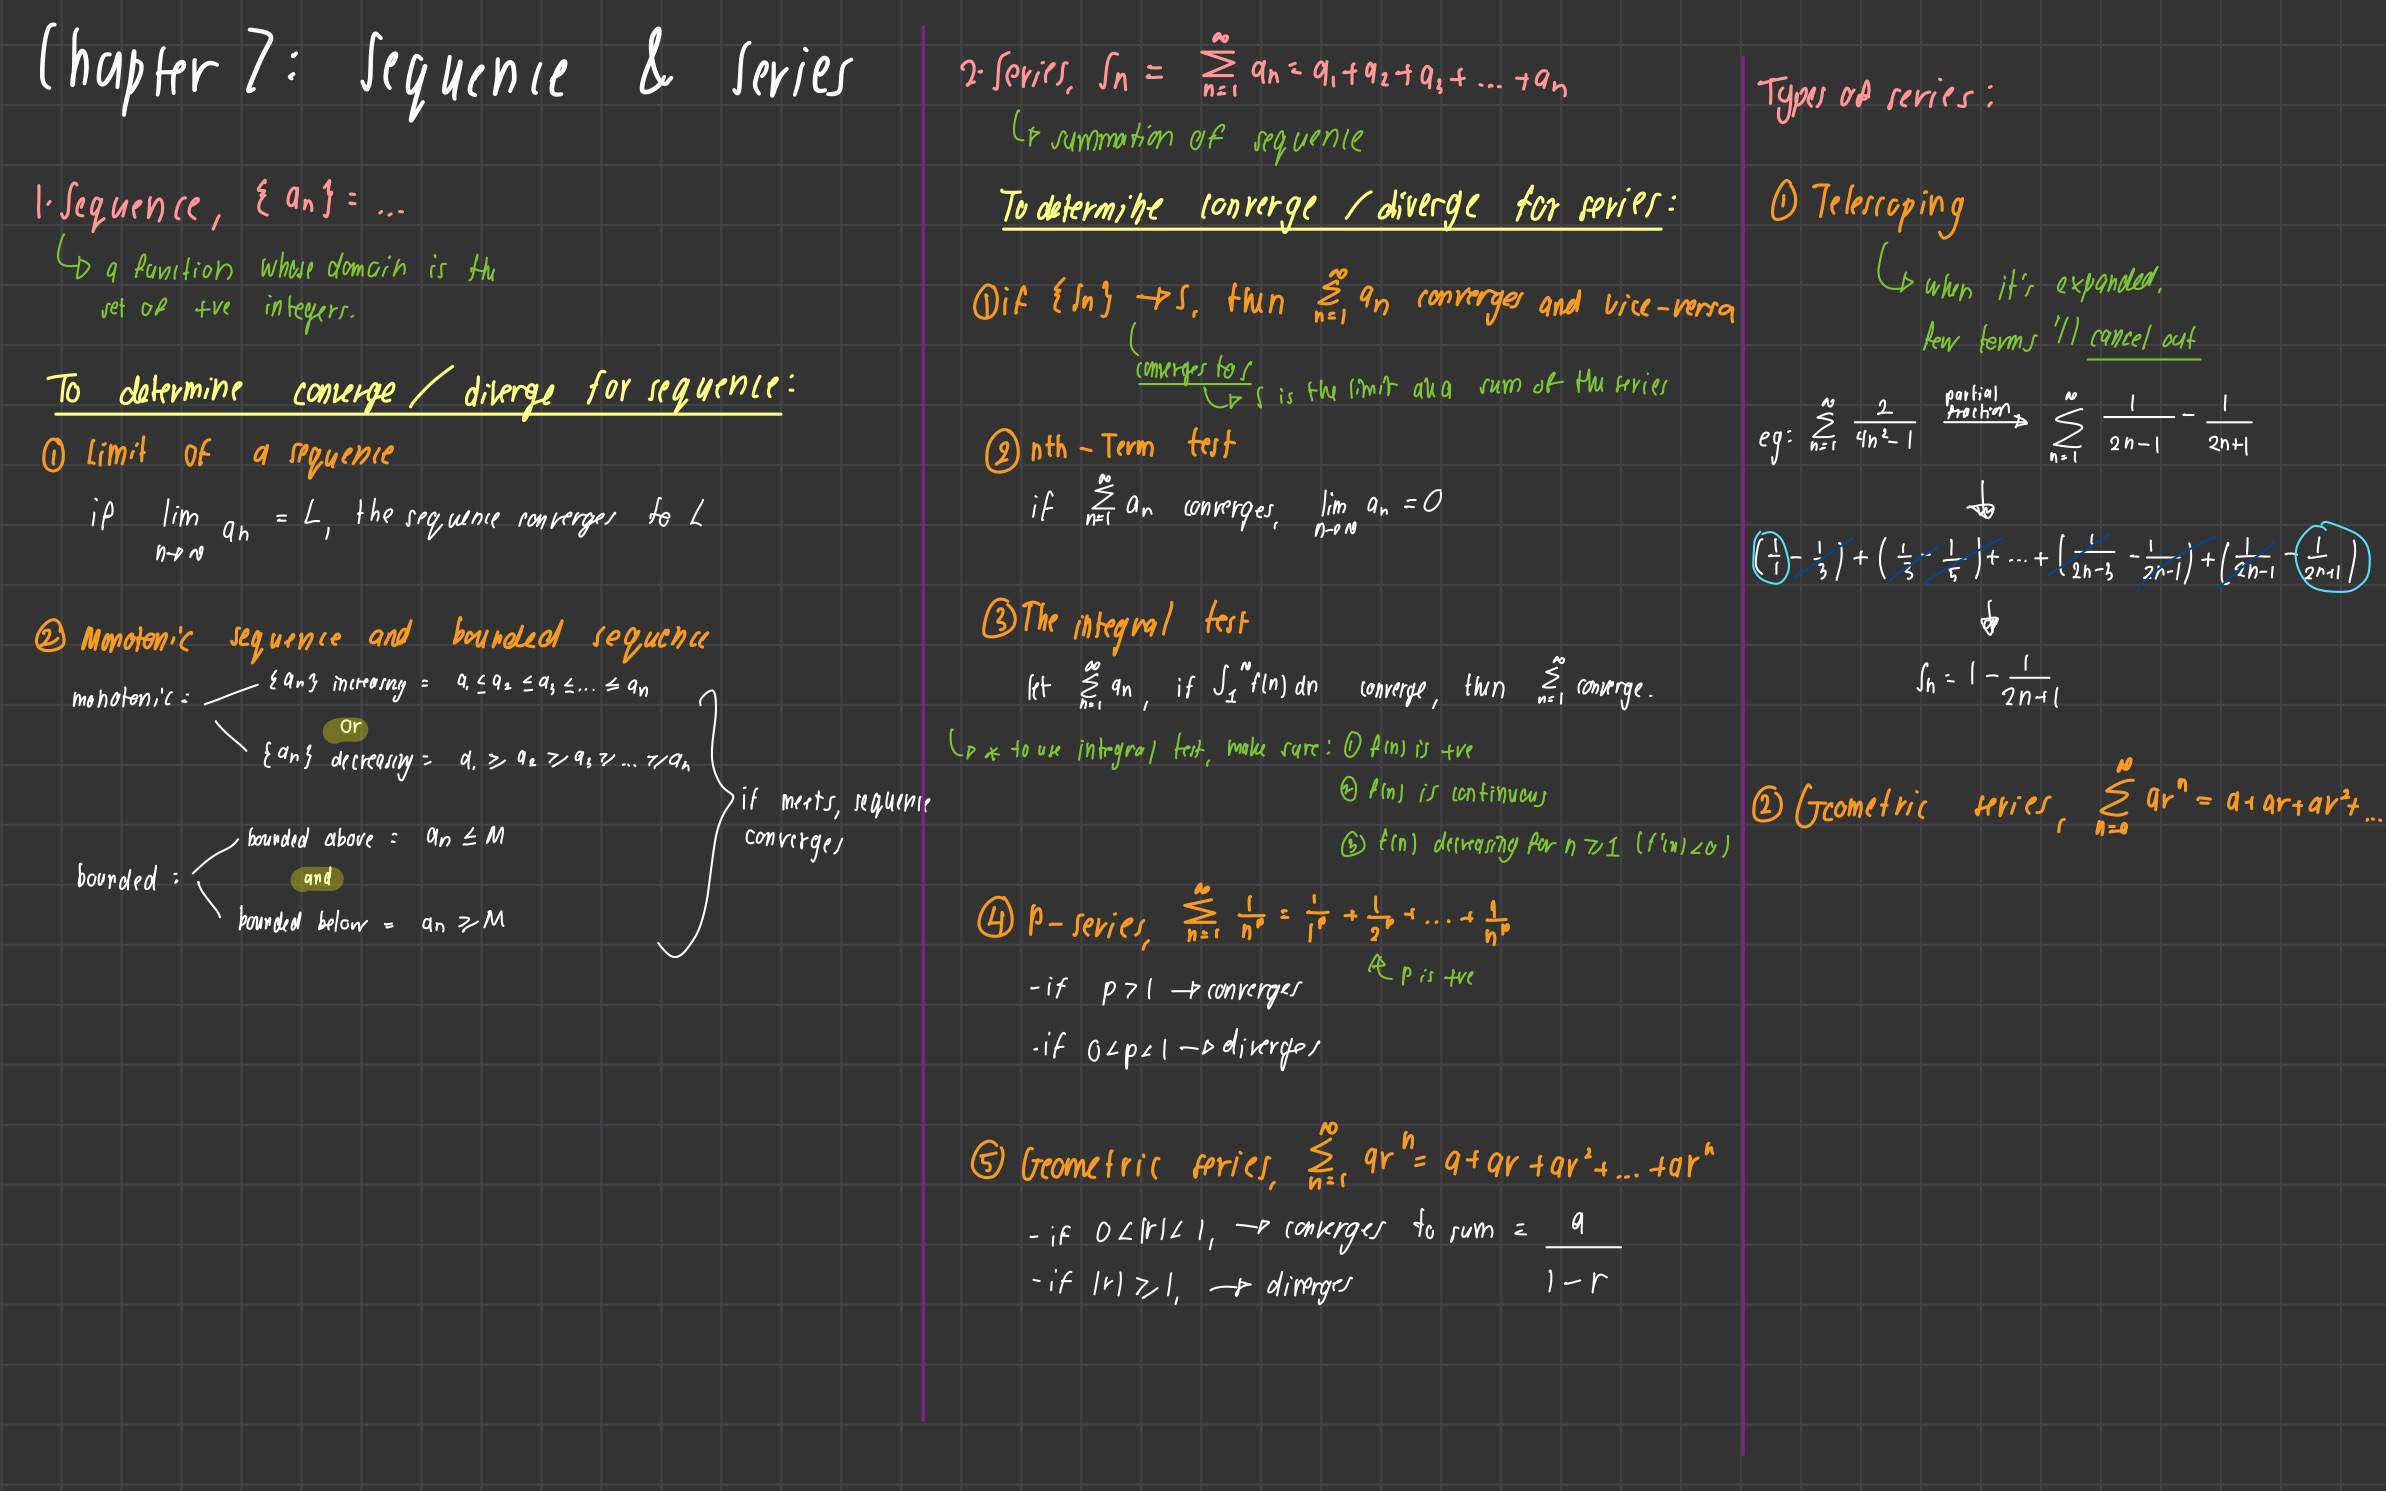 Chapter 7: Sequence & Series
1. Sequence, {an} = ...
↳ a function whose domain is the
set of +ve integers.
To determine converge / diverge for sequence:
① Limit of a sequence
if lim n→∞ an = L, the sequence converges to L
② Monotonic sequence and bounded sequence
monotonic: {an} increasing = a1 ≤ a2 ≤ a3 ≤ ... ≤ an
or
{an} decreasing = a1 ≥ a2 ≥ a3 ≥ ... ≥ an
if meets, sequence
converges
bounded: bounded above = an ≤ M
and
bounded below = an ≥ M
2. Series, Sn = ∞ Σ n=1 an = a1 + a2 + a3 + ... + an
↳ summation of sequence
To determine converge / diverge for series:
① if {Sn} → S, then ∞ Σ n=1 an converges and vice-versa
converges to S
↳ S is the limit aka sum of the series
② nth-Term test
if ∞ Σ n=1 an converges, lim n→∞ an = 0
③ The integral test
let ∞ Σ n=1 an, if ∫1^∞ f(n) dn converge, then ∞ Σ n=1 converge.
↳ * to use integral test, make sure: ① f(n) is +ve
② f(n) is continuous
③ f(n) decreasing for n ≥ 1 (f'(n) < 0)
④ P-series, ∞ Σ n=1 1/n^p = 1/1^p + 1/2^p + ... + 1/n^p
p is +ve
- if p > 1 → converges
- if 0 < p < 1 → diverges
⑤ Geometric series, ∞ Σ n=1 ar^n = a + ar + ar² + ... + ar^n
- if 0 < |r| < 1, → converges to sum = a / 1 - r
- if |r| ≥ 1, → diverges
Types of series:
① Telescoping
↳ when it's expanded,
few terms 'll cancel out
eg: ∞ Σ n=1 2/4n²-1 partial fraction → ∞ Σ n=1 1/2n-1 - 1/2n+1
↓
(1/1 - 1/3) + (1/3 - 1/5) + ... + (1/2n-3 - 1/2n-1) + (1/2n-1 - 1/2n+1)
↓
Sn = 1 - 1/2n+1
② Geometric series, ∞ Σ n=0 ar^n = a + ar + ar² + ...